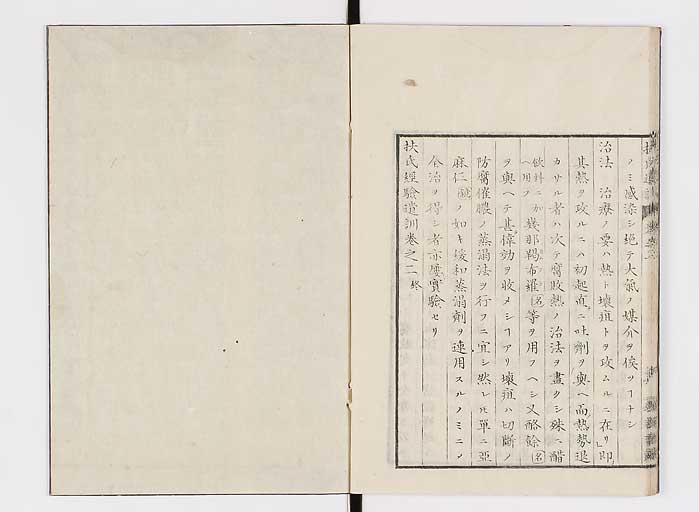 ノミ感染シ絶テ大氣ノ媒介ヲ俟ツヿナシ
治法 治療ノ要ハ熱ト壞疽トヲ攻ムルニ在リ即
其熱ヲ攻ルニハ初起直ニ吐劑ヲ與ヘ而熱勢退
カサル者ハ次テ腐敗熱ノ治法ヲ盡クシ殊ニ醋
飲料ニ加ヘ用フ 幾那羯布羅名等ヲ用フヘシ又酪餘名
ヲ與ヘテ甚偉効ヲ收メシヿアリ壞疽ハ切斷ノ
防腐催膿ノ蒸溻法ヲ行フニ宜シ然レ𪜈單ニ亞
麻仁 ノ如キ緩和蒸溻劑ヲ連用スルノミニノ
全治ヲ得シ者亦屢實驗セリ
扶氏經驗遺訓卷之二終